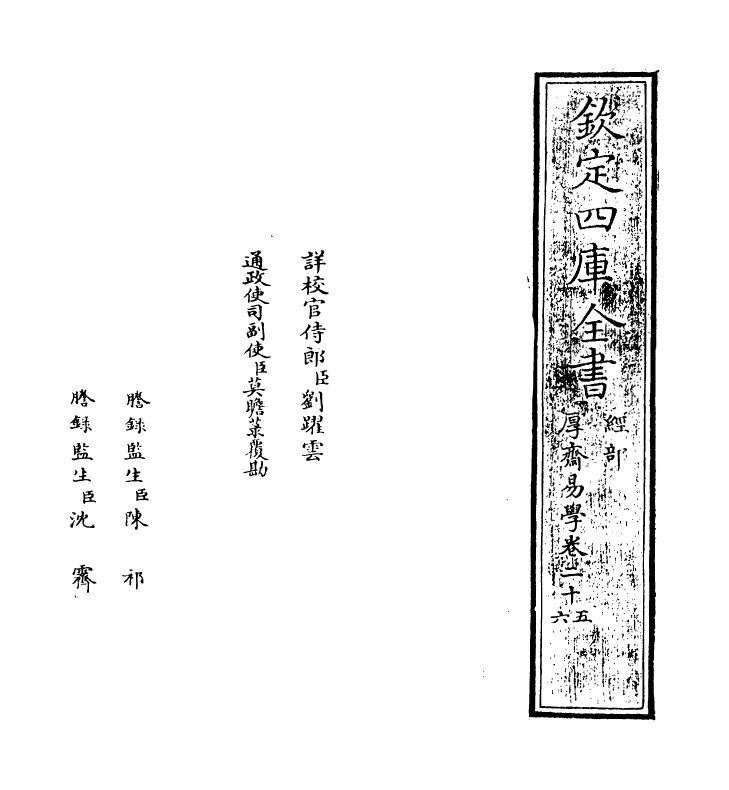 欽定四庫全書
經部
厚齋易學卷二十五
六
詳校官侍郎臣劉躍雲
通政使司副使臣莫瞻菉覆勘
謄錄監生臣陳祁
謄錄監生臣沈霽